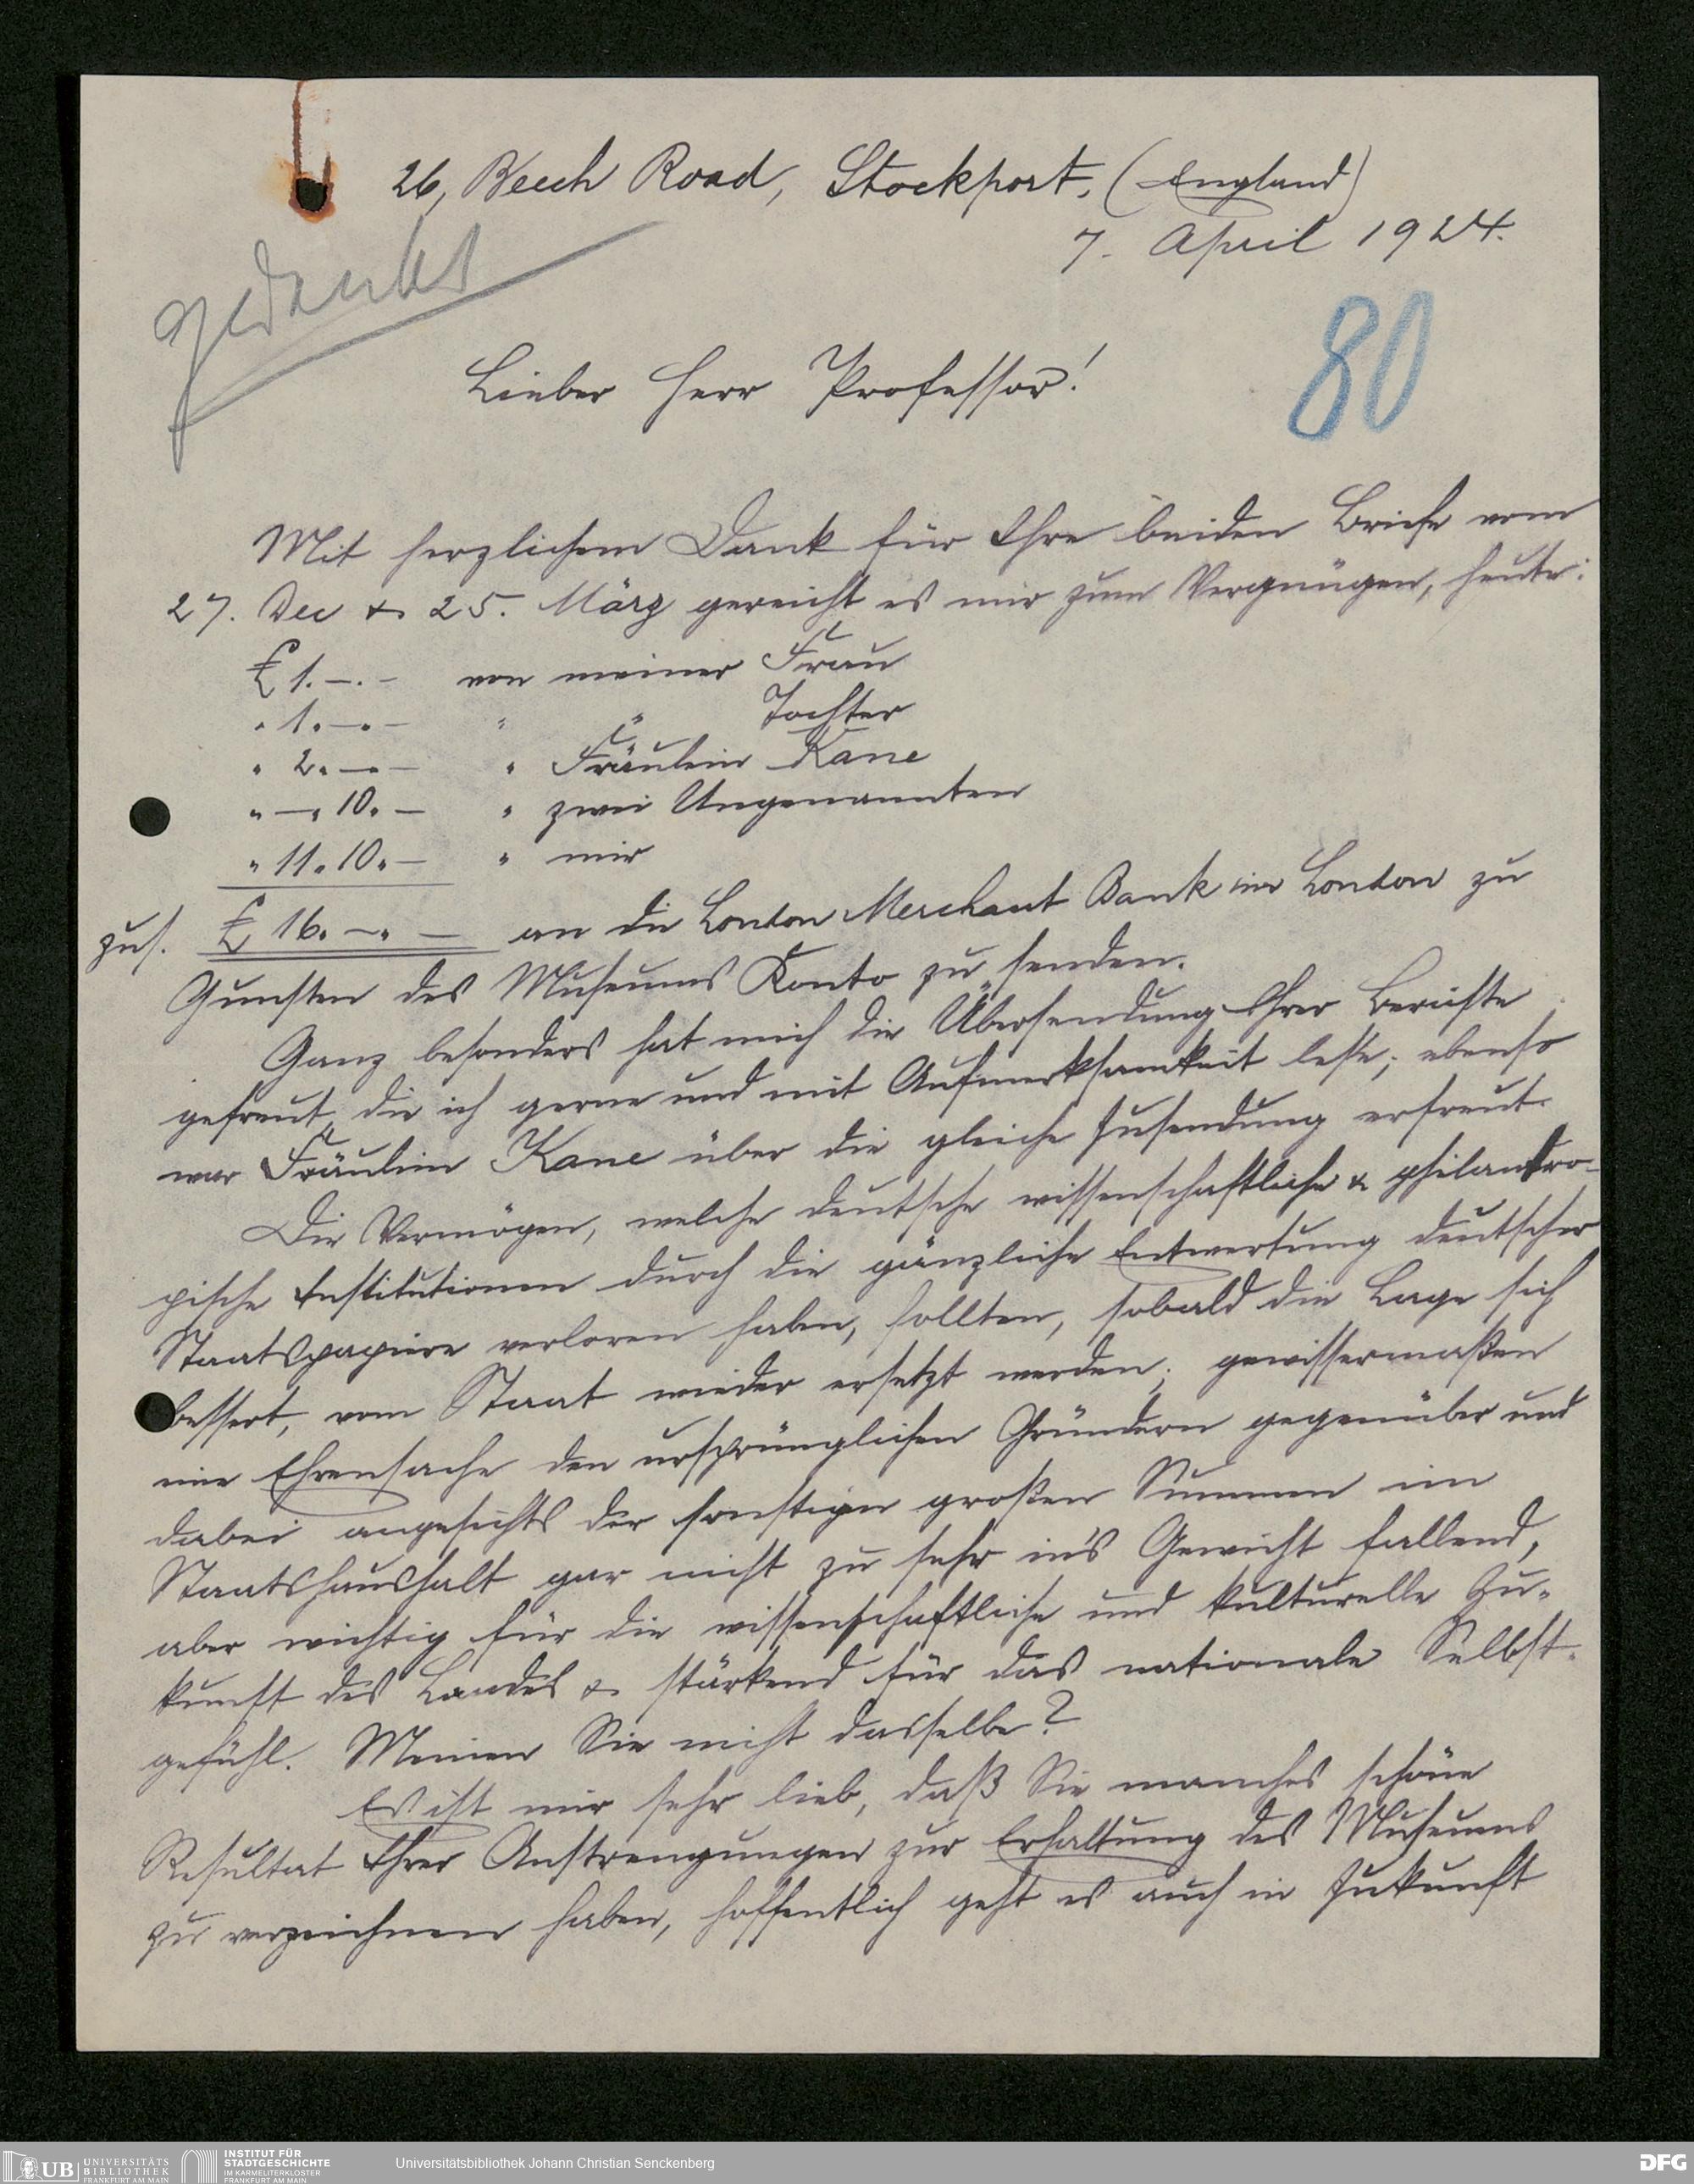 26, Beech Road, Stockport, (England)
7. April 1924.
gedankt
80
Lieber Herr Professor!
Mit herzlichem Dank für Ihre beiden Briefe vom
27. Dec & 25. März gereicht es mir zum Vergnügen, heute:
£ 1.–.– von meiner Frau
" 1.–.– " " Tochter
" 2.–.– " Fräulein Kane
" –.10.– " zwei Ungenannten
" 11.10.– " mir
zus. £ 16.–.– an die London Merchant Bank in London zu
Gunsten des Museums Konto zu senden.
Ganz besonders hat mich die Übersendung Ihrer Berichte
gefreut, die ich gerne und mit Aufmerksamkeit lese; ebenso
war Fräulein Kane über die gleiche Zusendung erfreut.
Die Vermögen, welche deutsche wissenschaftliche & philantro-
pische Institutionen durch die gänzliche Entwertung deutscher
Staatspapiere verloren haben, sollten, sobald die Lage sich
bessert, vom Staat wieder ersetzt werden; gewissermaßen
eine Ehrensache den ursprünglichen Gründern gegenüber und
dabei angesichts der sonstigen großen Summen im
Staatshaushalt gar nicht zu sehr in's Gewicht fallend,
aber wichtig für die wissenschaftliche und kulturelle Zu-
kunft des Landes & stärkend für das nationale Selbst-
gefühl. Meinen Sie nicht dasselbe?
Es ist mir sehr lieb, daß Sie manches schöne
Resultat Ihrer Anstrengungen zur Erhaltung des Museums
zu verzeichnen haben, hoffentlich geht es auch in Zukunft
UB UNIVERSITÄTS
BIBLIOTHEK
FRANKFURT AM MAIN
INSTITUT FÜR
STADTGESCHICHTE
IM KARMELITERKLOSTER
FRANKFURT AM MAIN
Universitätsbibliothek Johann Christian Senckenberg
DFG